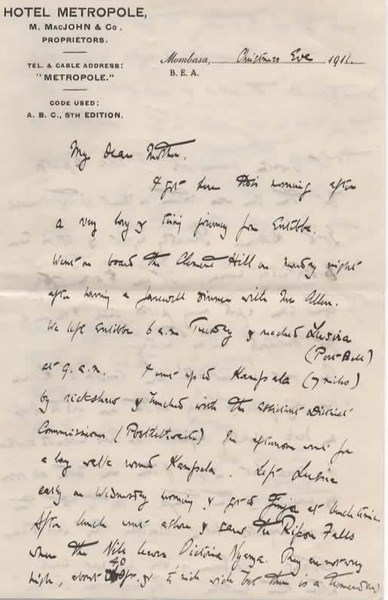 HOTEL METROPOLE,
M. MACJOHN & CO.
PROPRIETORS.
TEL. & CABLE ADDRESS:
"METROPOLE."
CODE USED:
A. B. C., 5TH EDITION.
Mombasa, Christmas Eve 191
B. E. A.
My dear Mother.
I got here this morning after
a very long & tiring journey from Entebbe.
Went on board the Clement Hill on Monday night
after having a farewell dinner with Mr Allen.
We left Entebbe 6 a.m Tuesday & reached Luzira
(Port Bell)
at 9. a.m. I went up to Kampala (7 miles)
by rickshaw & lunched with the assistant District
Commissioner In afternoon went for
a long walk round Kampala. Left Luzira
early on Wednesday morning & got to Jinja at lunch time.
After lunch went ashore & saw the Ripon Falls
where the Nile leaves Victoria Nyanza. They are not very
high, about & wide but there is a tremendous